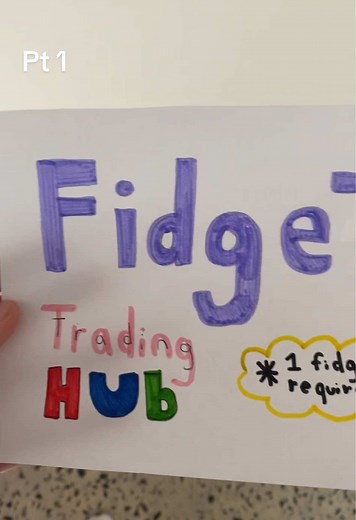 Pt 1
Fidge
Trading
HUb
* 1 fidg
requir